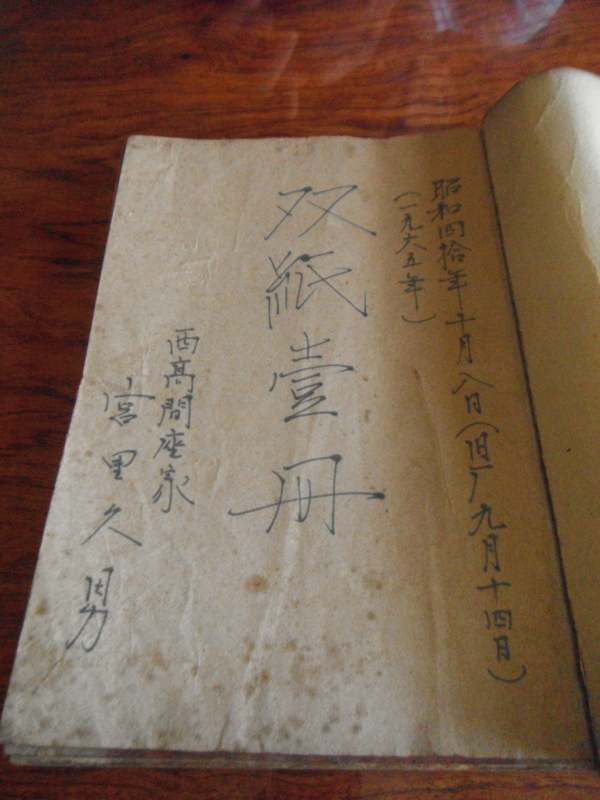 昭和四拾年十月八日(旧厂九月十四日)
(一九六五年)
双紙壹冊
西髙間座家
宮里久男